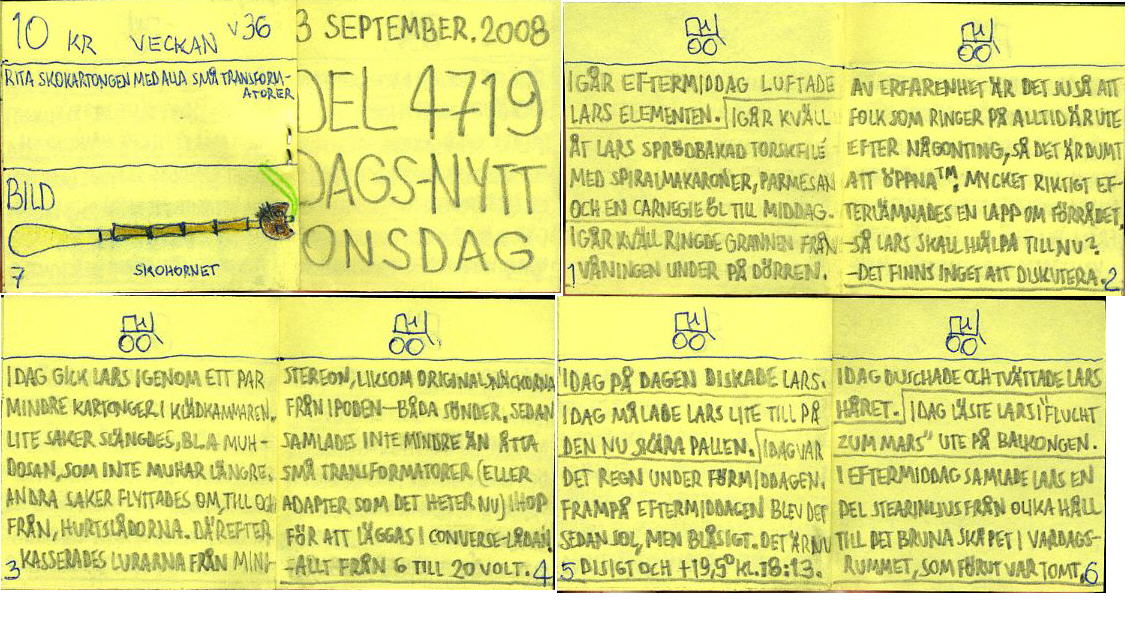 10 KR VECKAN V36
RITA SKOKARTONGEN MED ALLA SMÅ TRANSFORM-
ATORER
BILD
7 SKOHORNET
3 SEPTEMBER. 2008
DEL 4719
DAGS-NYTT
ONSDAG
IGÅR EFTERMIDDAG LUFTADE
LARS ELEMENTEN. IGÅR KVÄLL
ÅT LARS SPRÖDBAKAD TORSKFILÉ
MED SPIRALMAKARONER, PARMESAN
OCH EN CARNEGIE ÖL TILL MIDDAG.
IGÅR KVÄLL RINGDE GRANNEN FRÅN
1 VÅNINGEN UNDER PÅ DÖRREN.
AV ERFARENHET ÄR DET JU SÅ ATT
FOLK SOM RINGER PÅ ALLTID ÄR UTE
EFTER NÅGONTING, SÅ DET ÄR DUMT
ATT ÖPPNA™. MYCKET RIKTIGT EF-
TERLÄMNADES EN LAPP OM FÖRRÅDET.
-SÅ LARS SKALL HJÄLPA TILL NU?
-DET FINNS INGET ATT DISKUTERA. 2
IDAG GICK LARS IGENOM ETT PAR
MINDRE KARTONGER I KLÄDKAMMAREN.
LITE SAKER SLÄNGDES, BL.A MUH-
DOSAN, SOM INTE MUHAR LÄNGRE.
ANDRA SAKER FLYTTADES OM, TILL OCH
FRÅN, HURTSLÅDORNA. DÄREFTER
3 KASSERADES LURARNA FRÅN MINI-
STEREON, LIKSOM ORIGINALSNÄCKORNA
FRÅN IPODEN-BÅDA SÖNDER. SEDAN
SAMLADES INTE MINDRE ÄN ÅTTA
SMÅ TRANSFORMATORER (ELLER
ADAPTER SOM DET HETER NU) IHOP
FÖR ATT LÄGGAS I CONVERSE-LÅDAN.
-ALLT FRÅN 6 TILL 20 VOLT. 4
IDAG PÅ DAGEN DISKADE LARS.
IDAG MÅLADE LARS LITE TILL PÅ
DEN NU SKÄRA PALLEN. IDAG VAR
DET REGN UNDER FÖRMIDDAGEN.
FRAMPÅ EFTERMIDDAGEN BLEV DET
SEDAN SOL, MEN BLÅSIGT. DET ÄR NU
5 DISIGT OCH +19,5° KL. 18:13.
IDAG DUSCHADE OCH TVÄTTADE LARS
HÅRET. IDAG LÄSTE LARS I "FLUCHT
ZUM MARS" UTE PÅ BALKONGEN.
I EFTERMIDDAG SAMLADE LARS EN
DEL STEARINLJUS FRÅN OLIKA HÅLL
TILL DET BRUNA SKÅPET I VARDAGS-
RUMMET, SOM FÖRUT VAR TOMT. 6